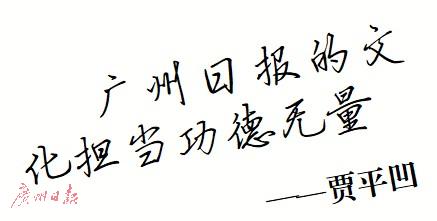 广州日报的文
化担当功德无量
——贾平凹
广州日报